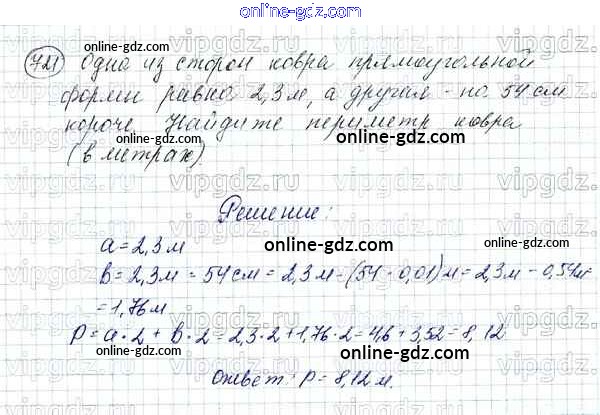 online-gdz.com
721 Одна из сторон ковра прямоугольной
online-gdz.com
формы равна 2,3 м, а другая - на 54 см
короче. Найдите периметр ковра
online-gdz.com
(в метрах).
online-gdz.com
Решение:
a = 2,3 м
online-gdz.com
online-gdz.com
b = 2,3 м = 54 см = 2,3 м - (54 · 0,01) м = 2,3 м - 0,54 м
= 1,76 м
online-gdz.com
P = a · 2 + b · 2 = 2,3 · 2 + 1,76 · 2 = 4,6 + 3,52 = 8,12
online-gdz.com
Ответ: P = 8,12 м.
online-gdz.com
vipgdz.ru